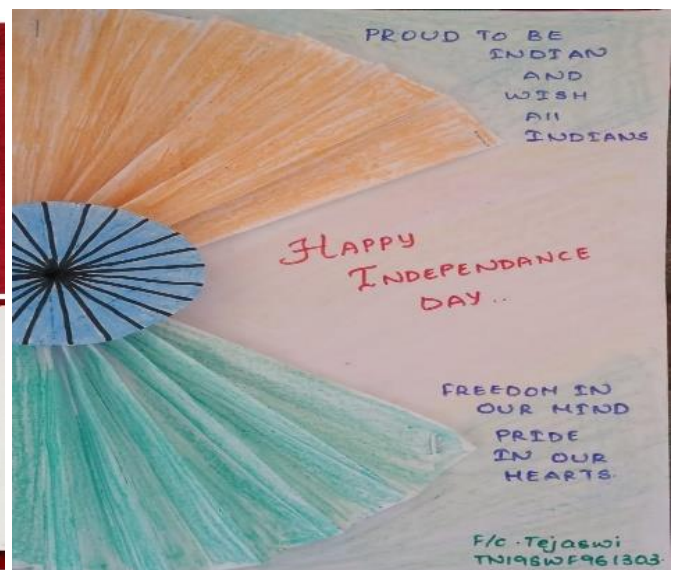 PROUD TO BE
INDIAN
AND
WISH
All
INDIANS
HAPPY
INDEPENDANCE
DAY..
FREEDOM IN
OUR MIND
PRIDE
IN OUR
HEARTS.
F/c. Tejaswi
TN19SWF961303.